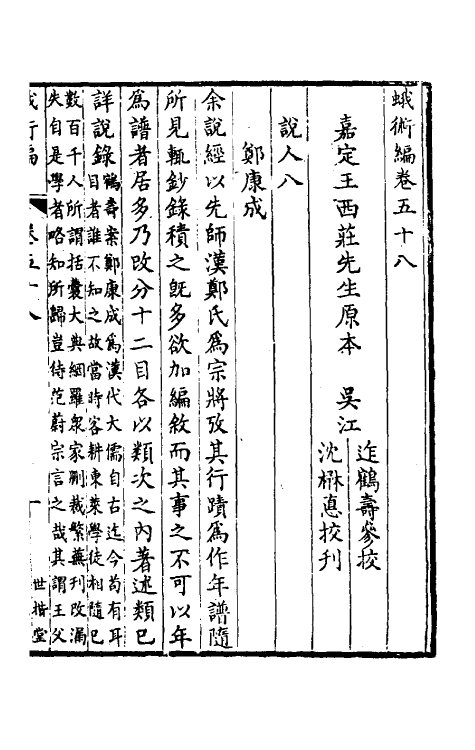 蛾術編卷五十八
嘉定王西莊先生原本　吳江
迮鶴壽參挍
沈楙悳挍刊
說人八
鄭康成
余說經以先師漢鄭氏爲宗將攷其行蹟爲作年譜隨
所見輒鈔錄積之旣多欲加編敘而其事之不可以年
爲譜者居多乃改分十二目各以類次之內著述類已
詳說錄
鶴壽案鄭康成爲漢代大儒自古迄今苟有耳
目者誰不知之故當時客耕東萊學徒相隨已
數百千人所謂括囊大典網羅衆家刪裁繁蕪刊改漏
失自是學者略知所歸豈待范蔚宗言之哉其謂王父
蛾術編
卷五十八
一
世楷堂